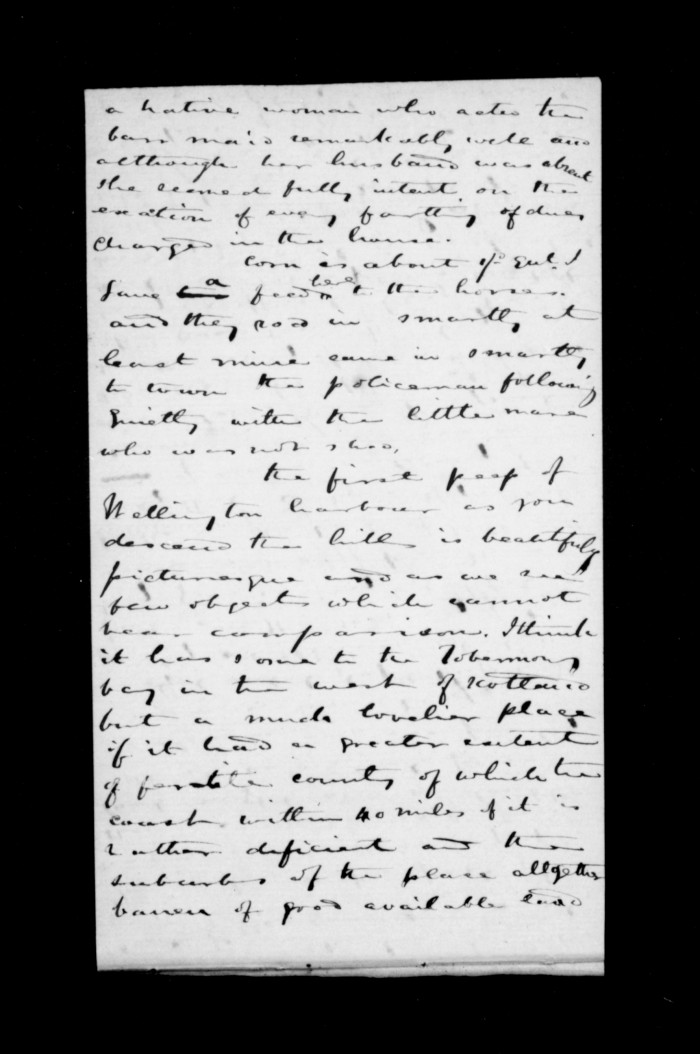 a native woman who acted the
barr maid remarkably well and
although her husband was absent
she seemed fully intent on the
exaction of every farthing of dues
charged in the house.
Corn is about
gave a feed here to the horses.
and they rod in smartly at
least mine came in smartly
to town the policeman following
quietly with the little mare
who was not shod,
the first peep of
Wellington harbour as you
descend the hills is beautifuly
picturesque and as we see
few objects which cannot
bear comparison. I think
it has some to the Tobermory
bay in the west of Scotland
but a much lovelier place
if it had a greater extent
of fertile country of which the
coast within 40 miles of it is
rather deficient and the
suburbs of the place allgether
barren of good available land